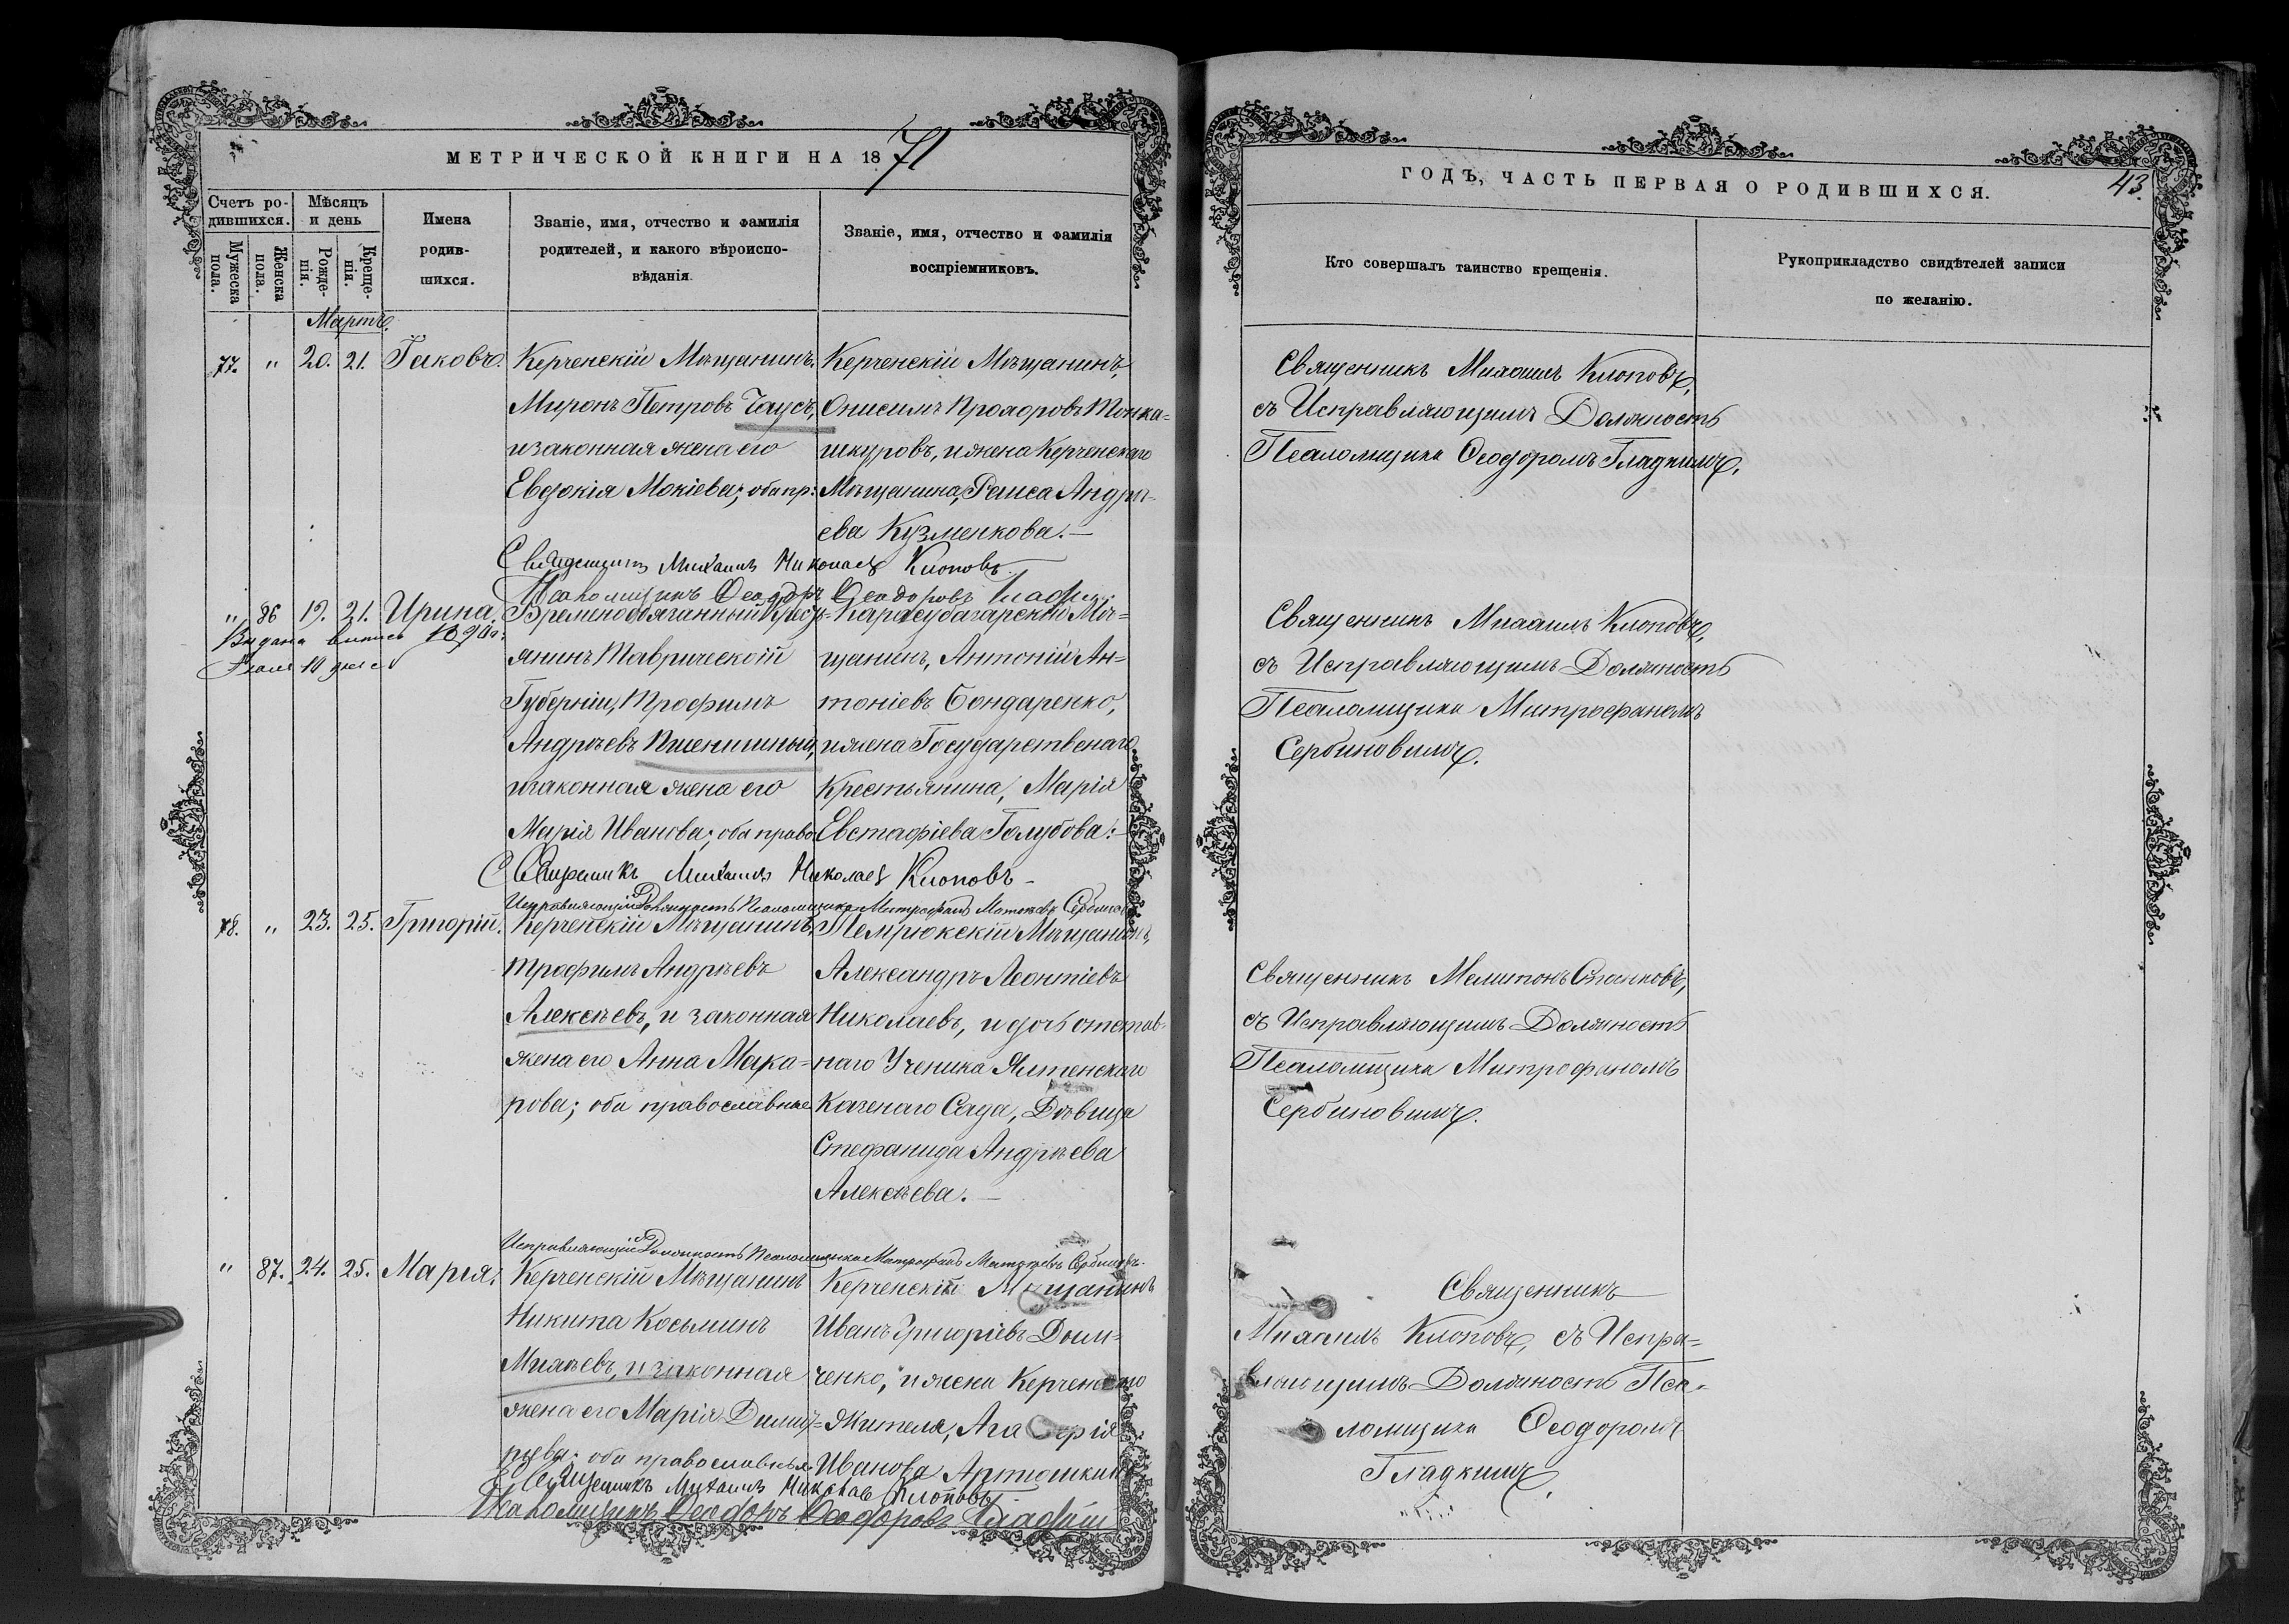 МЕТРИЧЕСКОЙ КНИГИ НА 1871
Счетъ ро-
дившихся.
Мѣсяцъ
и день
Мужеска
пола.
Женска
пола.
Рожде-
нія.
Креще-
нія.
Имена
родив-
шихся.
Званіе, имя, отчество и фамилія
родителей, и какого вѣроиспо-
вѣданія.
Званіе, имя, отчество и фамилія
воспріемниковъ.
Мартъ.
77. " 20. 21. Іаковъ.
Керченскій Мѣщанинъ,
Миронъ Петровъ Чаусъ,
и законная жена его
Евдокія Мокіева; оба пр:
Керченскій Мѣщанинъ,
Онисимъ Прохоровъ Тонка=
шкуровъ, и жена Керченскаго
Мѣщанина, Раиса Андре=
ева Кузменкова.—
Священникъ Михаилъ Николаевъ Клоповъ
Псаломщикъ Ѳеодоръ Ѳеодоровъ Гладкій
" 86 19. 21. Ирина.
Выдана выпись 1890 г.
10 дня
Временнообязанный Крест=
янинъ Таврической
Губерніи, Трофимъ
Андреевъ Пшеничный,
и законная жена его
Марія Иванова; оба право
Карасубазарскій Мѣ=
щанинъ, Антоній Ан=
тоніевъ Бондаренко,
и жена Государственнаго
Крестьянина, Марія
Евстафіева Голубова:—
Священникъ Михаилъ Николаевъ Клоповъ
Исправляющій Должность Псаломщика Митрофанъ Матвѣевъ Сербиновъ
78. " 23. 25. Григорій.
Керченскій Мѣщанинъ,
Трофимъ Андреевъ
Алексѣевъ, и законная
жена его Анна Мака=
рова; оба православные
Темрюкскій Мѣщанинъ,
Александръ Леонтіевъ
Николаевъ, и дочь отстав-
наго Ученика Ялтенскаго
Казеннаго Сада, Дѣвица
Стефанида Андреева
Алексѣева.—
Исправляющій Должность Псаломщика Митрофанъ Матвѣевъ Сербиновъ.
" 87. 24. 25. Марія.
Керченскій Мѣщанинъ
Никита Косьминъ
Михѣевъ, и законная
жена его Марія Димит=
ріева; оба православные
Керченскій Мѣщанинъ
Иванъ Григоріевъ Дом=
ченко, и жена Керченскаго
Жителя, Агафія
Иванова Артюшкина
Священникъ Михаилъ Николаевъ Клоповъ
Псаломщикъ Ѳеодоръ Ѳеодоровъ Гладкій
ГОДЪ, ЧАСТЬ ПЕРВАЯ О РОДИВШИХСЯ.
43.
Кто совершалъ таинство крещенія.
Рукоприкладство свидѣтелей записи
по желанію.
Священникъ Михаилъ Клоповъ,
съ Исправляющимъ Должность
Псаломщика Ѳеодоромъ Гладкимъ.
Священникъ Михаилъ Клоповъ,
съ Исправляющимъ Должность
Псаломщика Митрофаномъ
Сербиновымъ.
Священникъ Мелитонъ Станковъ,
съ Исправляющимъ Должность
Псаломщика Митрофаномъ
Сербиновымъ.
Священникъ
Михаилъ Клоповъ, съ Испра=
вляющимъ Должность Пса=
ломщика Ѳеодоромъ
Гладкимъ.